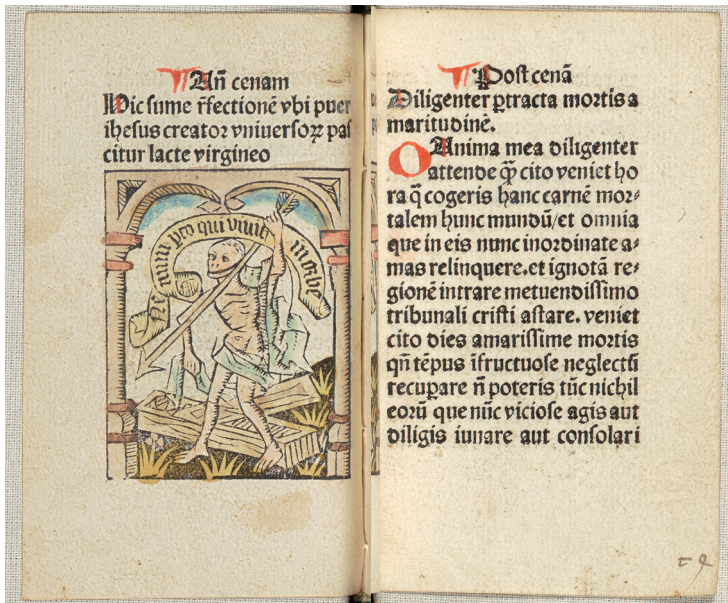 Añ cenam
Hic sume r̃fectionē vbi puer
ihesus creator vniuersoꝝ pas
citur lacte virgineo
pro qui viuit in orbe
Post cenā
Diligenter ꝑtracta mortis a
maritudinē.
O Anima mea diligenter
attende ꝙ̃ cito veniet ho
ra q̄ cogeris hanc carnē mor⸗
talem hunc mundū/et omnia
que in eis nunc inordinate a⸗
mas relinquere.et ignotā re⸗
gionē intrare metuendissimo
tribunali cristi astare. veniet
cito dies amarissime mortis
qñ tēpus īfructuose neglectū
recuꝑare ñ poteris tūc nichil
eorū que nūc viciose agis aut
diligis iuuare aut consolari